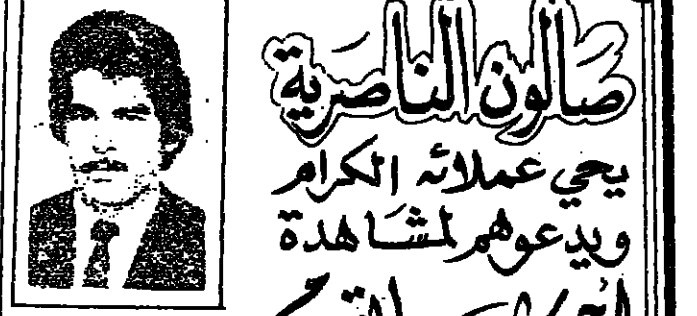 صالون الناصرية
يحي عملائه الكرام
ويدعوهم لمشاهدة